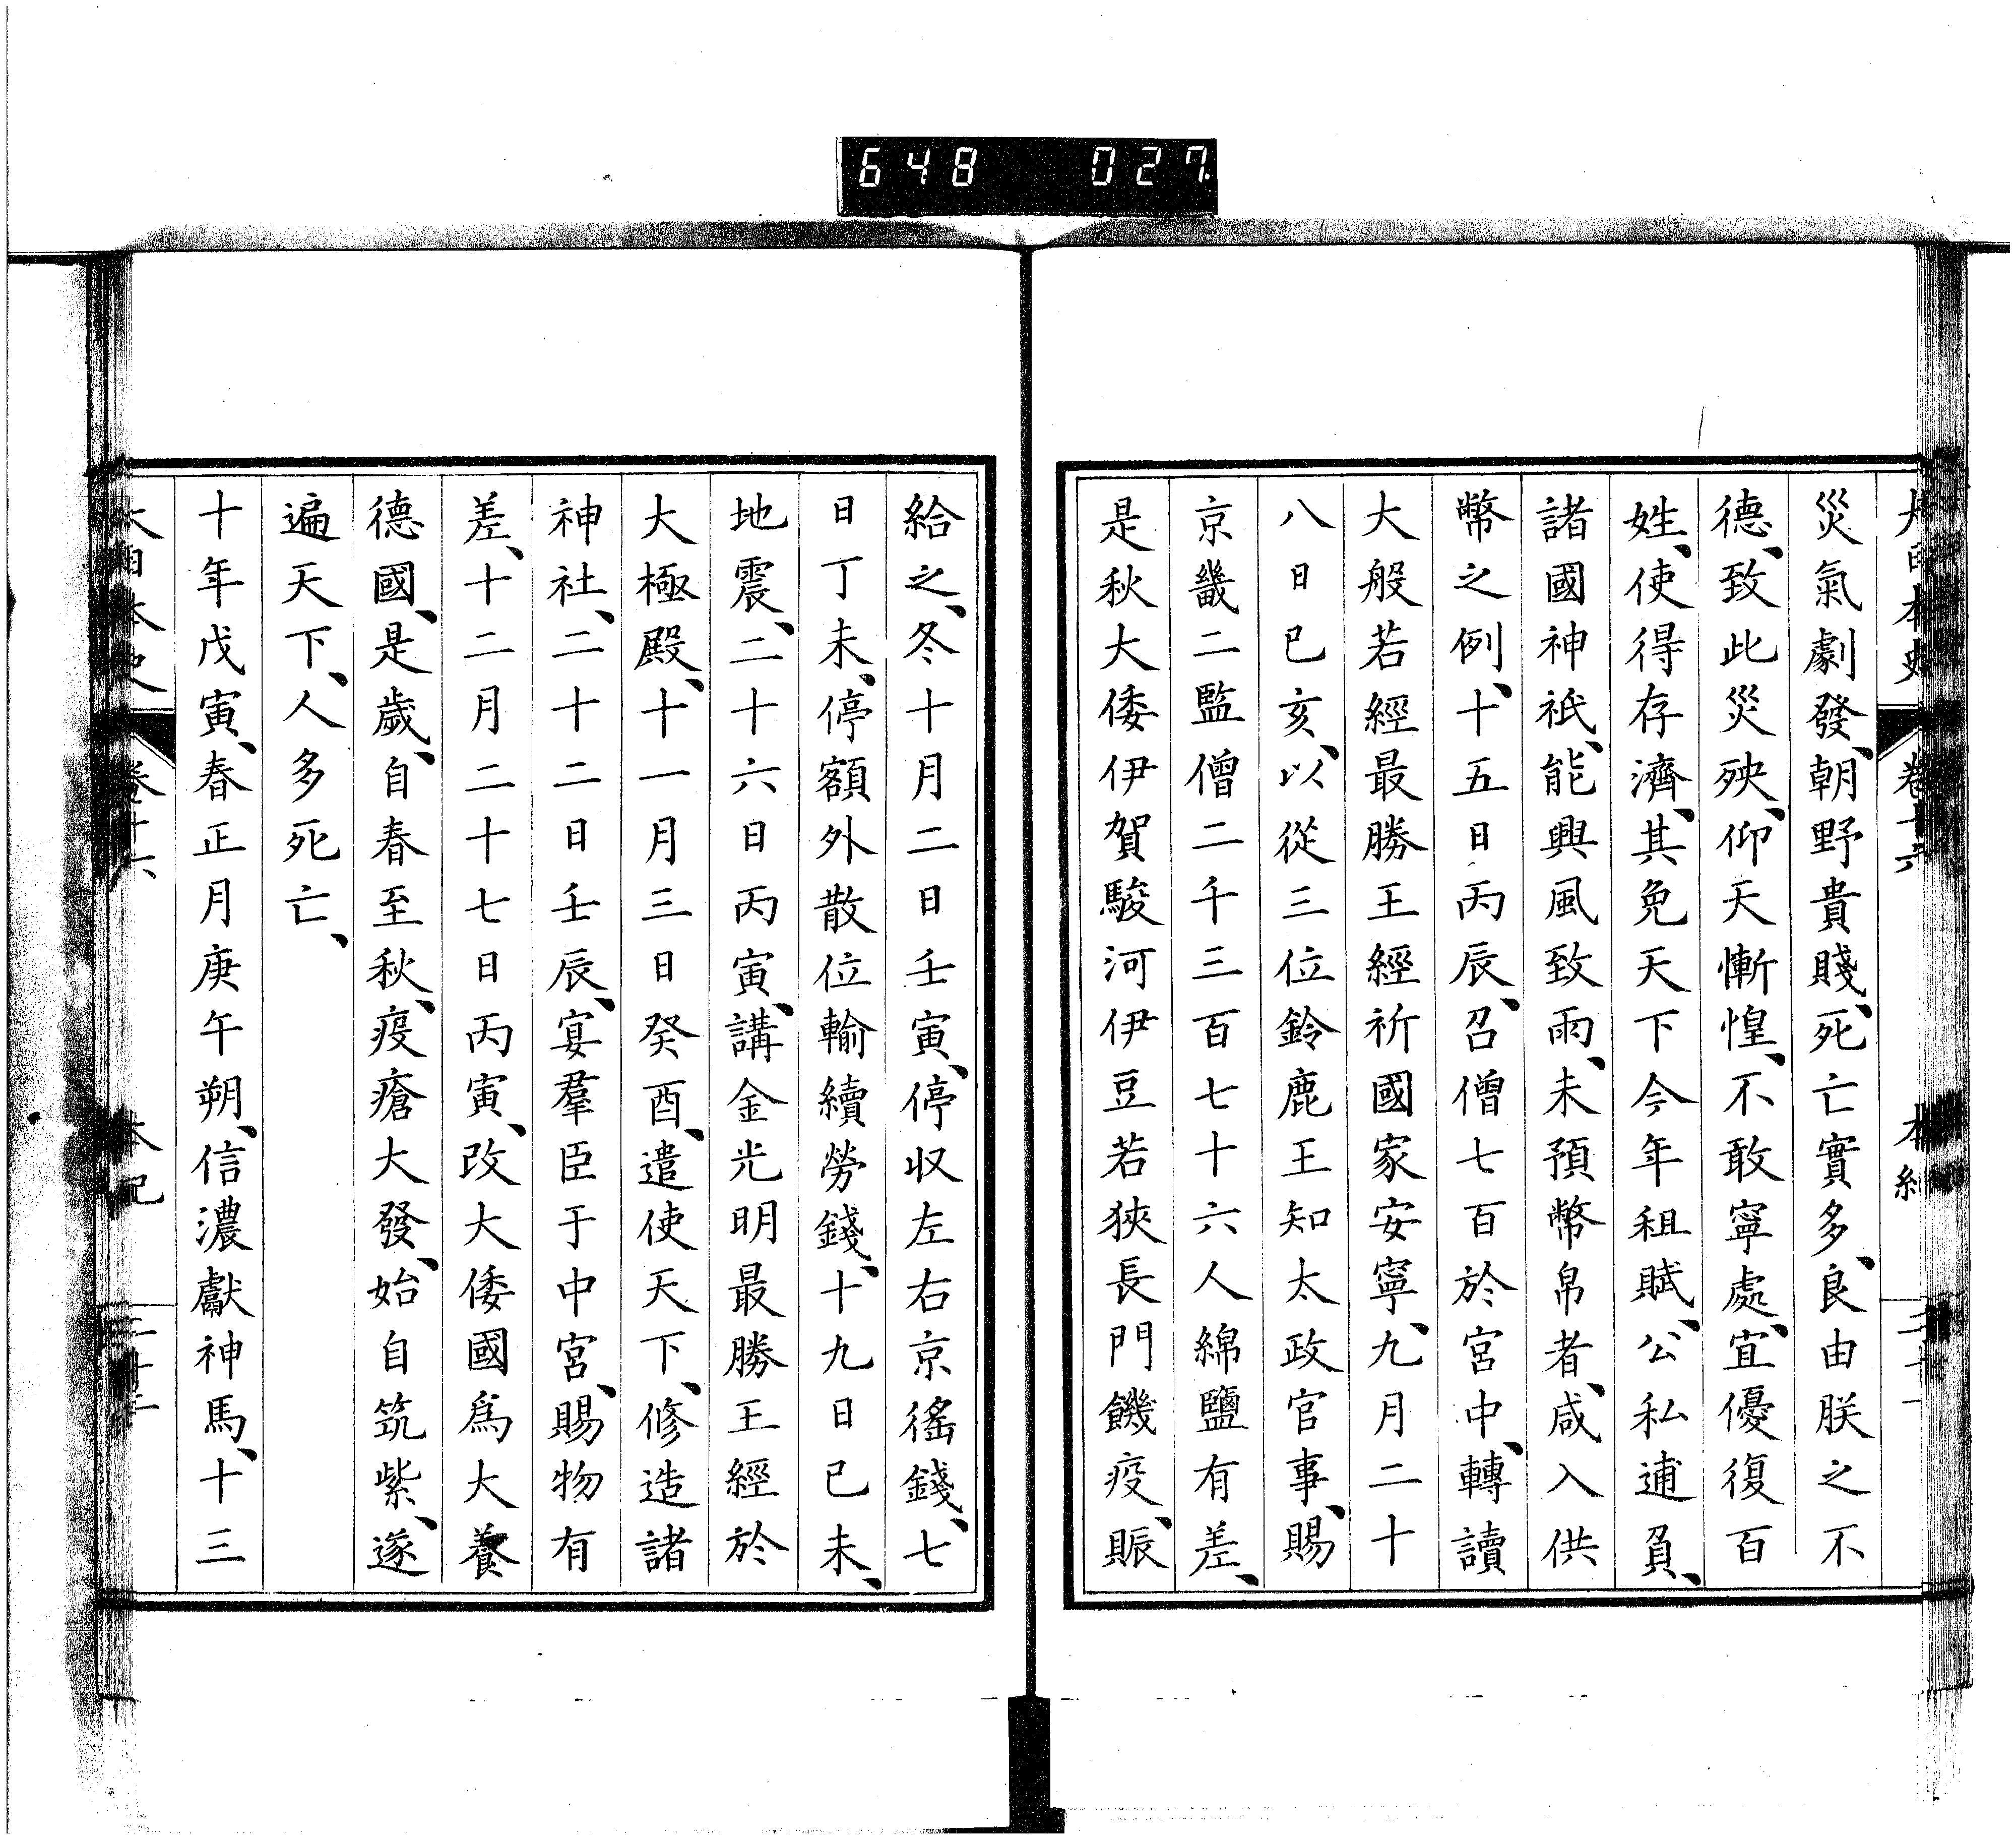 648 027
大日本史 卷十六 本紀
災氣劇發、朝野貴賤、死亡實多、良由朕之不
德、致此災殃、仰天慚惶、不敢寧處、宜優復百
姓、使得存濟、其免天下今年租賦、公私逋負、
諸國神祇、能興風致雨、未預幣帛者、咸入供
幣之例、十五日丙辰、召僧七百於宮中、轉讀
大般若經最勝王經祈國家安寧、九月二十
八日已亥、以從三位鈴鹿王知太政官事、賜
京畿二監僧二千三百七十六人綿鹽有差、
是秋大倭伊賀駿河伊豆若狹長門饑疫、賑
給之、冬十月二日壬寅、停収左右京徭錢、七
日丁未、停額外散位輸續勞錢、十九日已未、
地震、二十六日丙寅、講金光明最勝王經於
大極殿、十一月三日癸酉、遣使天下、修造諸
神社、二十二日壬辰、宴羣臣于中宮、賜物有
差、十二月二十七日丙寅、改大倭國爲大養
德國、是歲、自春至秋、疫瘡大發、始自筑紫、遂
遍天下、人多死亡、
十年戊寅、春正月庚午朔、信濃獻神馬、十三
大日本史 卷十六 本紀